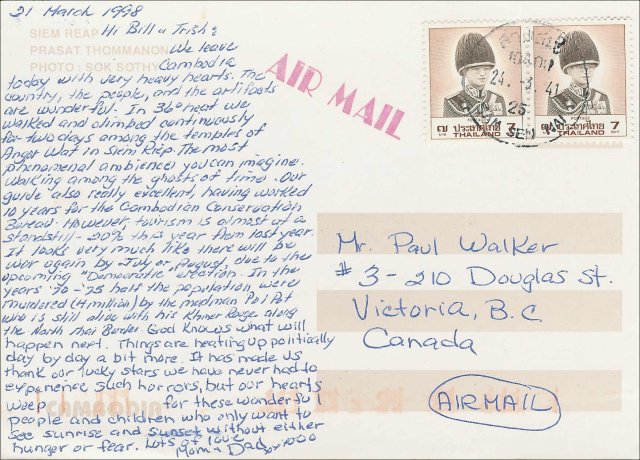 21 March 1998
Hi Bill & Trish:
SIEM REAP
PRASAT THOMMANON
PHOTO : SOK SOTHY
We leave
Cambodia
today with very heavy hearts. The
country, the people, and the artifacts
are wonderful. In 36° heat we
walked and climbed continuously
for two days among the temples of
Angor Wat in Siem Riep. The most
phenomenal ambience you can imagine.
Walking among the ghosts of time. Our
guide also really excellent, having worked
10 years for the Cambodian Conservation
Bureau. However, tourism is almost at a
standstill - 20% this year from last year.
It looks very much like there will be
war again by July or August, due to the
upcoming "Democratic" election. In the
years '70 - '75 half the population, were
murdered (4 million) by the madman Pol Pot
who is still alive with his Khmer Rouge along
the North Thai Border. God knows what will
happen next. Things are heating up politically
day by day a bit more. It has made us
thank our lucky stars we have never had to
experience such horrors, but our hearts
weep for these wonderful
CAMBODIA
people and children who only want to
see sunrise and sunset without either
hunger or fear. Lots of love
Mom & Dad xoxoo
AIR MAIL
๗ ประเทศไทย 7
THAILAND
๗ ประเทศไทย 7
THAILAND
Mr. Paul Walker
#3 - 210 Douglas St.
Victoria, B.C.
Canada
AIRMAIL